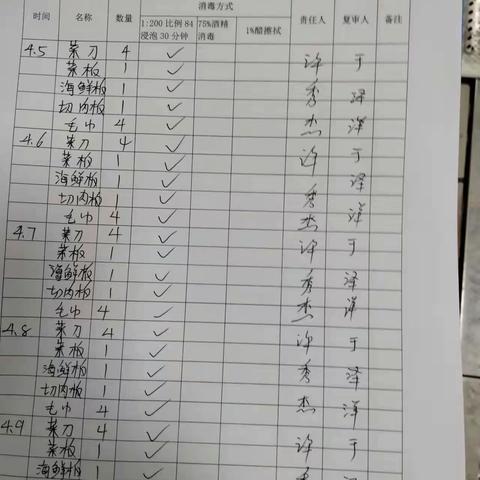 时间 名称 数量 消毒方式 责任人 复审人 备注
1:200 比例 84 浸泡 30 分钟 75%酒精消毒 1%醋擦拭
4.5 菜刀 4 ✓ 许 于
菜板 1 ✓
海鲜板 1 ✓ 秀 泽
切肉板 1 ✓
毛巾 4 ✓ 杰 洋
4.6 菜刀 4 ✓ 许 于
菜板 1 ✓
海鲜板 1 ✓ 秀 泽
切肉板 1 ✓
毛巾 4 ✓ 杰 洋
4.7 菜刀 4 ✓ 许 于
菜板 1 ✓
海鲜板 1 ✓ 秀 泽
切肉板 1 ✓
毛巾 4 ✓ 杰 洋
4.8 菜刀 4 ✓ 许 于
菜板 1 ✓
海鲜板 1 ✓ 秀 泽
切肉板 1 ✓
毛巾 4 ✓ 杰 洋
4.9 菜刀 4 ✓ 许 于
菜板 1 ✓
海鲜板 1 ✓